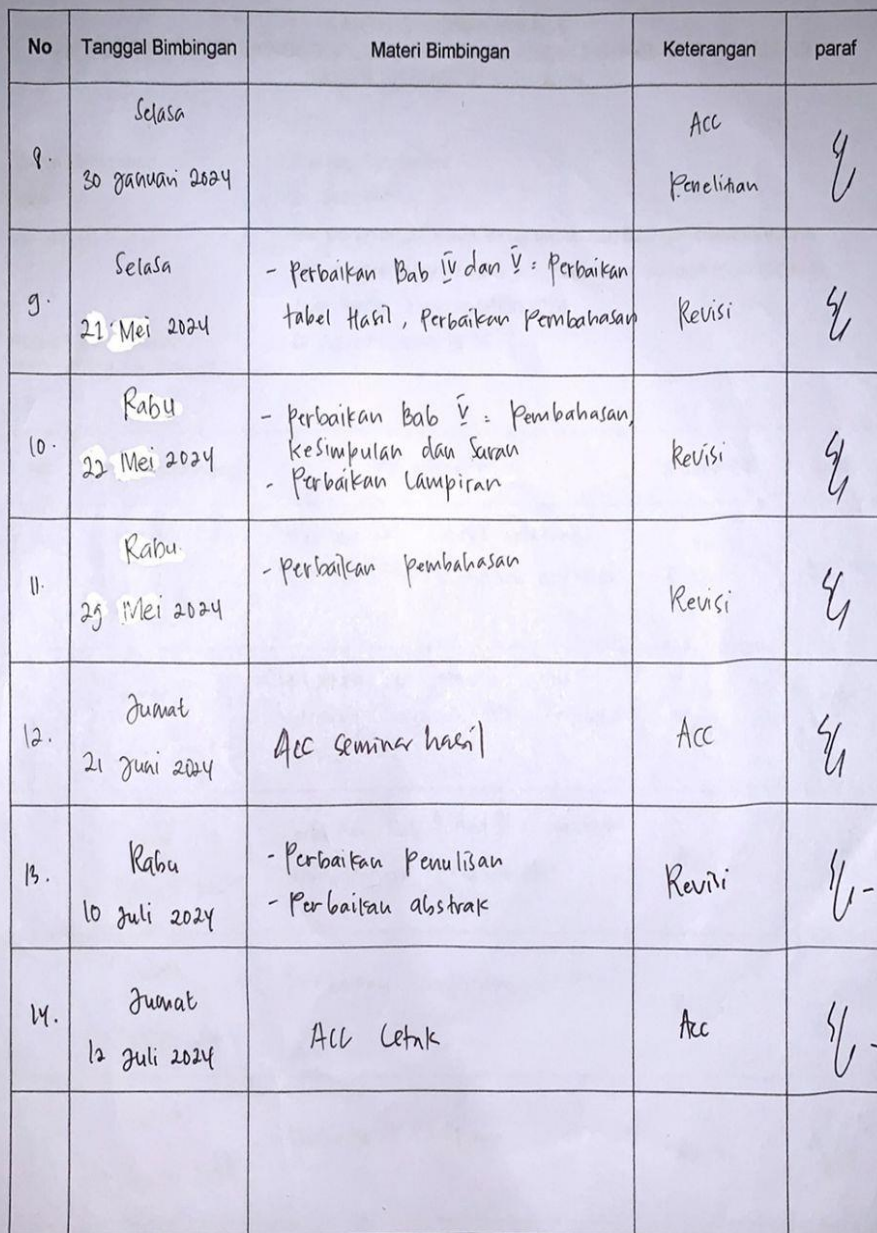 No Tanggal Bimbingan Materi Bimbingan Keterangan paraf
8.
Selasa
30 Januari 2024
Acc
Penelitian
9.
Selasa
21 Mei 2024
- Perbaikan Bab IV dan V : Perbaikan
tabel Hasil, Perbaikan Pembahasan
Revisi
10.
Rabu
22 Mei 2024
- Perbaikan Bab V : Pembahasan,
Kesimpulan dan Saran
- Perbaikan Lampiran
Revisi
11.
Rabu
29 Mei 2024
- Perbaikan pembahasan
Revisi
12.
Jumat
21 Juni 2024
Acc seminar hasil
Acc
13.
Rabu
10 Juli 2024
- Perbaikan Penulisan
- Perbaikan abstrak
Revisi
14.
Jumat
12 Juli 2024
Acc Cetak
Acc